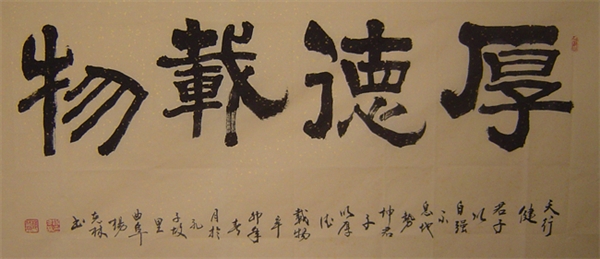 厚德載物
天行健君子以自强不息地势坤君子以厚德載物辛卯年春月於孔子故里曲阜楊克林书